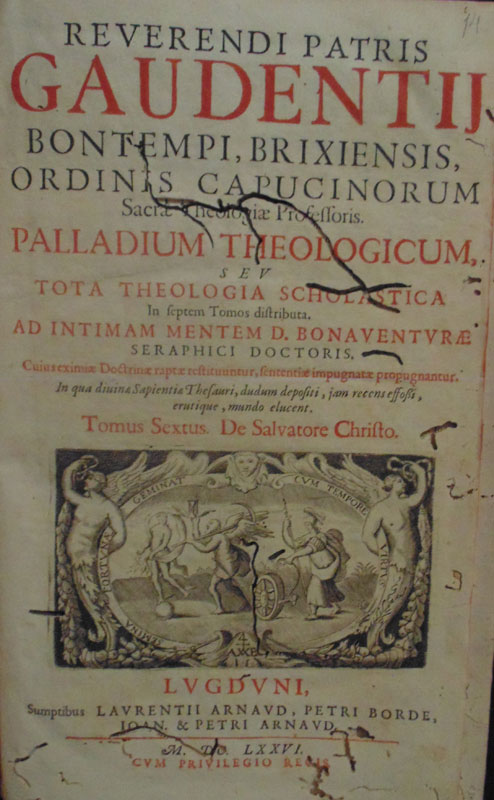 REVERENDI PATRIS
GAUDENTIJ
BONTEMPI, BRIXIENSIS,
ORDINIS CAPUCINORUM
Sacræ Theologiæ Professoris.
PALLADIUM THEOLOGICUM,
SEV
TOTA THEOLOGIA SCHOLASTICA
In septem Tomos distributa.
AD INTIMAM MENTEM D. BONAVENTVRÆ
SERAPHICI DOCTORIS,
Cuius eximiæ Doctrinæ raptæ restituuntur, sententiæ impugnatæ propugnantur.
In qua diuinæ Sapientiæ Thesauri, dudum depositi, jam recens effossi,
erutique, mundo elucent.
Tomus Sextus. De Salvatore Christo.
OMNIA FORTUNA GEMINAT CVM TEMPORE VIRTVS
LVGDVNI,
Sumptibus LAVRENTII ARNAVD, PETRI BORDE,
IOAN. & PETRI ARNAVD.
M. DC. LXXVI.
CVM PRIVILEGIO REGIS.